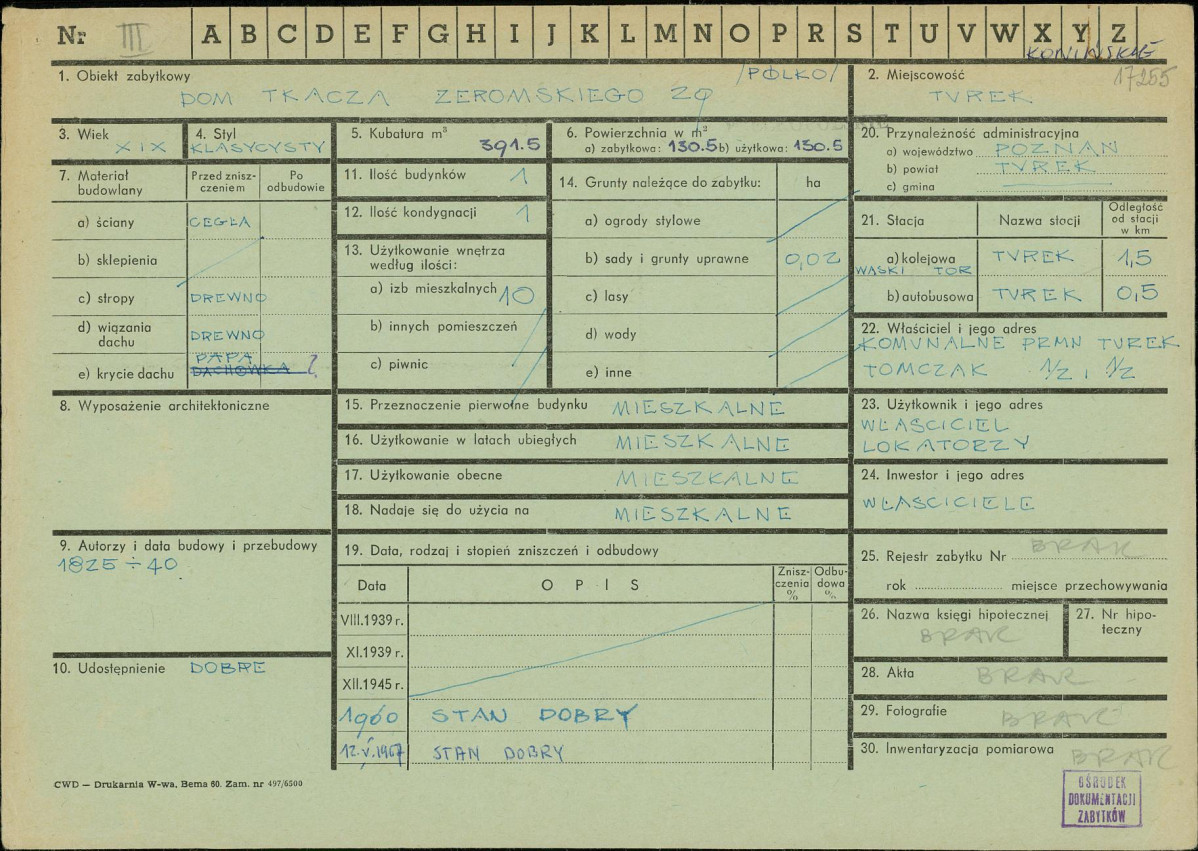 Nr III A B C D E F G H I J K L M N O P R S T U V W X Y Z
KONIŃSKIE
17255
1. Obiekt zabytkowy
/PÓLKO/
DOM TKACZA ŻEROMSKIEGO 29
2. Miejscowość
TUREK
3. Wiek
XIX
4. Styl
KLASYCYSTY
5. Kubatura m³
391.5
6. Powierzchnia w m²
a) zabytkowa: 130.5 b) użytkowa: 130.5
7. Materiał budowlany
Przed zniszczeniem
Po odbudowie
a) ściany CEGŁA
b) sklepienia
c) stropy DREWNO
d) wiązania dachu DREWNO
PAPA
e) krycie dachu DACHÓWKA ?
8. Wyposażenie architektoniczne
9. Autorzy i data budowy i przebudowy
1825 ÷ 40
10. Udostępnienie DOBRE
11. Ilość budynków 1
12. Ilość kondygnacji 1
13. Użytkowanie wnętrza
według ilości:
a) izb mieszkalnych 10
b) innych pomieszczeń
c) piwnic
14. Grunty należące do zabytku: ha
a) ogrody stylowe
b) sady i grunty uprawne 0,02
c) lasy
d) wody
e) inne
15. Przeznaczenie pierwotne budynku MIESZKALNE
16. Użytkowanie w latach ubiegłych MIESZKALNE
17. Użytkowanie obecne MIESZKALNE
18. Nadaje się do użycia na MIESZKALNE
19. Data, rodzaj i stopień zniszczeń i odbudowy
Data OPIS Zniszczenia % Odbudowa %
VIII.1939 r.
XI.1939 r.
XII.1945 r.
1960 STAN DOBRY
12.V.1967 STAN DOBRY
20. Przynależność administracyjna
a) województwo POZNAŃ
b) powiat TUREK
c) gmina
21. Stacja Nazwa stacji Odległość od stacji w km
a) kolejowa TUREK 1,5
WĄSKI TOR
b) autobusowa TUREK 0,5
22. Właściciel i jego adres
KOMUNALNE PRMN TUREK
TOMCZAK 1/2 i 1/2
23. Użytkownik i jego adres
WŁAŚCICIEL
LOKATORZY
24. Inwestor i jego adres
WŁAŚCICIELE
25. Rejestr zabytku Nr BRAK
rok miejsce przechowywania
26. Nazwa księgi hipotecznej
BRAK
27. Nr hipoteczny
28. Akta BRAK
29. Fotografie BRAK
30. Inwentaryzacja pomiarowa BRAK
CWD — Drukarnia W-wa, Bema 60. Zam. nr 497/6500
OŚRODEK
DOKUMENTACJI
ZABYTKÓW